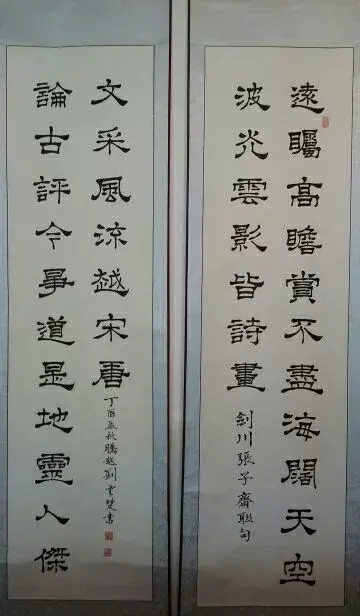 遠矚高瞻賞不盡海闊天空
波光雲影皆詩畫
劍川張子齋聯句
論古評今爭道是地靈人傑
文采風流越宋唐
丁酉孟秋騰越劉雲楚書